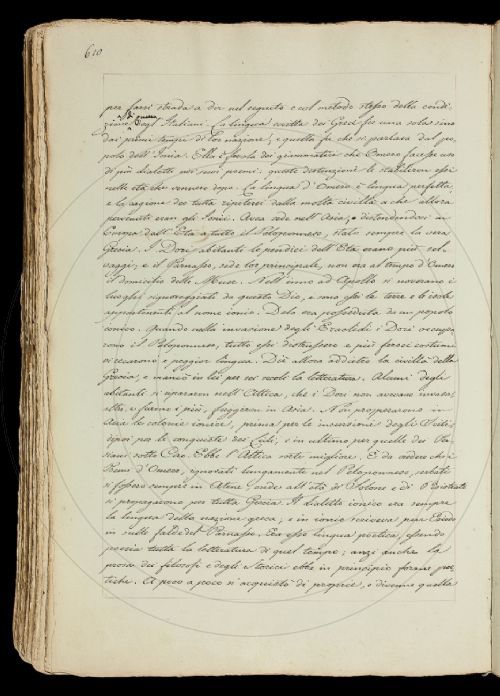 610
per farsi strada a dir nel seguito e col metodo stesso della condi-
zione di quegl'Italiani. La lingua scritta dei Greci fu una sola sino
dai primi tempi di lor nazione; e quella fu che si parlava dal po-
polo dell'Ionia. Ella è favola dei grammatici che Omero facesse uso
di più dialetti ne' suoi poemi: queste distinzioni le stabilirono essi
nelle età che vennero dopo. La lingua d'Omero è lingua perfetta,
e la ragione dee tutta ripetersi dalla molta civiltà a che allora
pervenuti eran gli Ionii. Avea sede nell'Asia; e distendendosi in
Europa dall'Eta a tutto il Peloponneso, stata sempre la vera
Grecia. I Dori abitanti le pendici dell'Eta erano più sel-
vaggi; e il Parnasso, sede lor principale, non era al tempo d'Omero
il domicilio delle Muse. Nell'inno ad Apollo si noverano i
luoghi signoreggiati da questo Dio, e sono sei le terre e le isole
appartenenti al nome ionio. Delo era posseduta da un popolo
ionico. Quando nella invasione degli Eraclidi i Dori occupa-
rono il Peloponneso, tutto essi distrussero e più feroci costumi
vi recarono e peggior lingua. Diè allora addietro la civiltà della
Grecia, e mancò in lei per sei secoli la letteratura. Alcuni degli
abitanti si ripararon nell'Attica, che i Dori non aveano invaso;
altri, e furono i più, fuggiron in Asia. Non prosperarono in
Asia le colonie ioniche, prima per le
per le conquiste dei Lidi, e in ultimo per quelle dei Per-
siani sotto Ciro. Ebbe l'Attica sorte migliore. È da credere che i
Poemi d'Omero, ignorati lungamente nel Peloponneso, serbati
si fossero sempre in Atene, onde all'età di Solone e di Pisistrato
si propagarono per tutta Grecia. Il dialetto ionico era sempre
la lingua della nazione greca; e in ionio scriveva pure Esiodo
in sulle falde del Parnasso. Era esso lingua poetica, essendo
poesia tutta la letteratura di quel tempo; anzi anche la
prosa dei filosofi e degli storici ebbe in principio forme poe-
tiche. A poco a poco si acquistò di proprie, e divenne quella